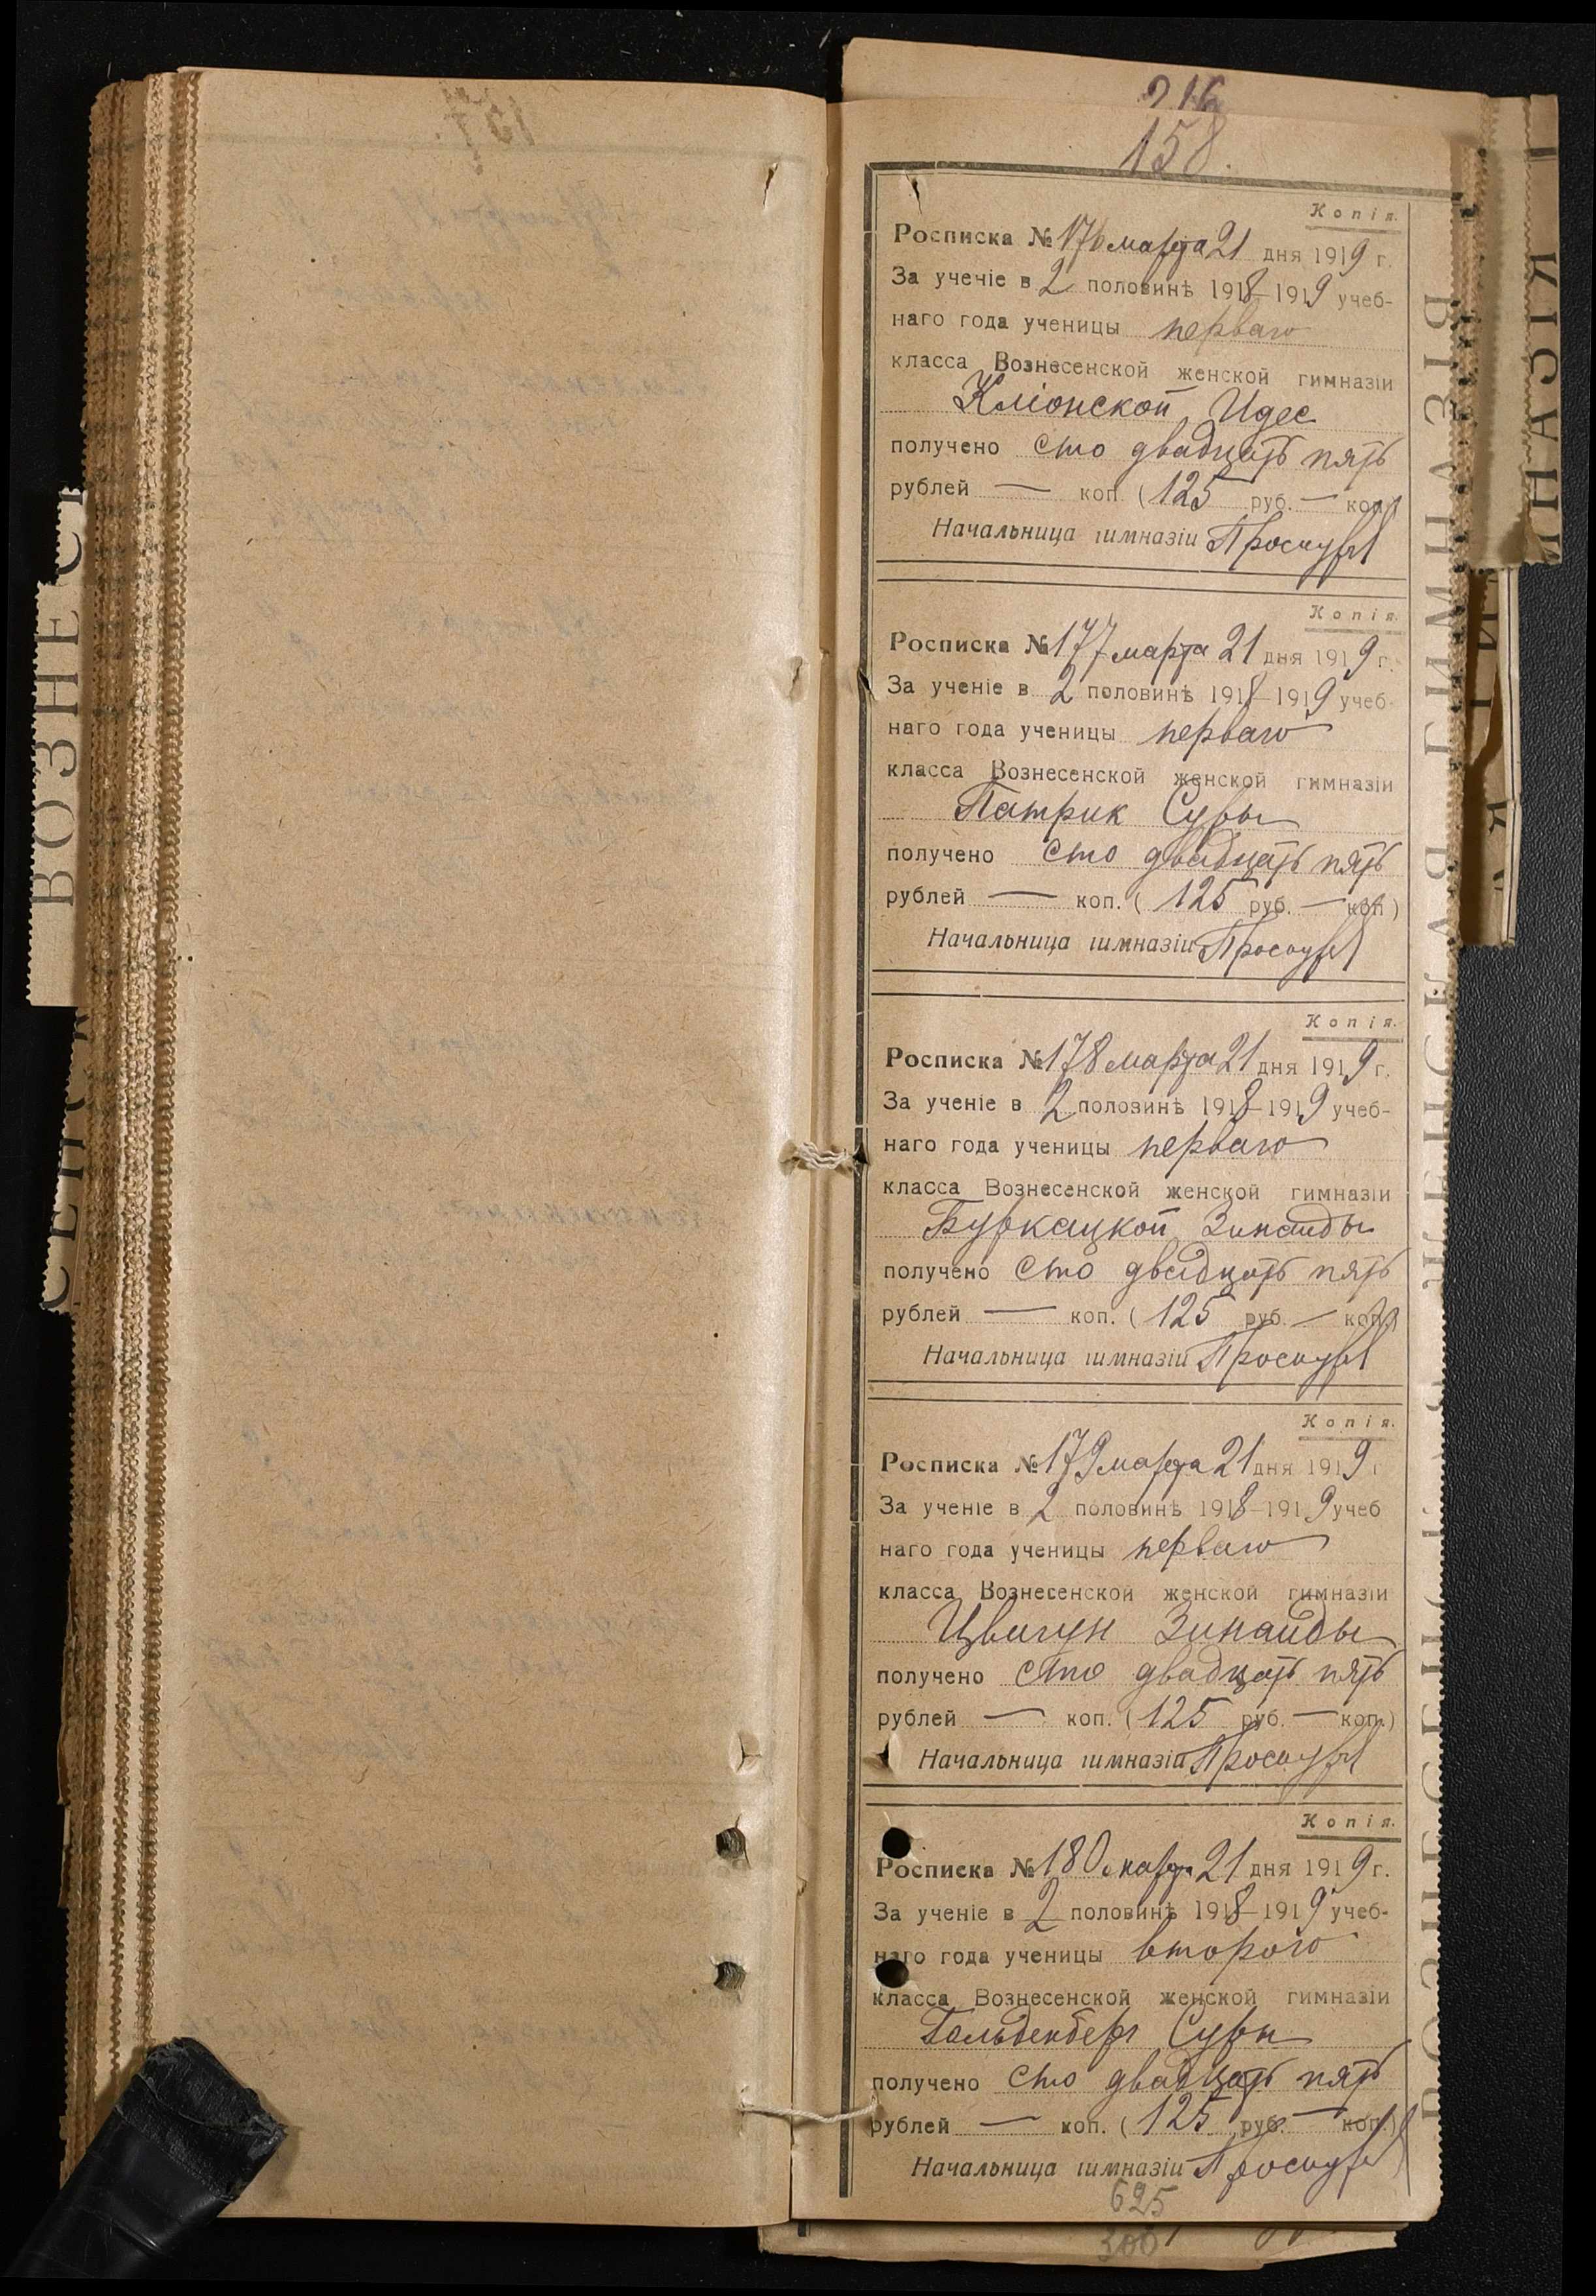 216
158.
Копія.
Росписка № 176 марта 21 дня 1919 г.
За ученіе в 2 половинѣ 1918–1919 учеб-
наго года ученицы перваго
класса Вознесенской женской гимназіи
Кліонской Идес
получено сто двадцать пять
рублей — коп. (125 руб. — коп.)
Начальница гимназіи
Копія.
Росписка № 177 марта 21 дня 1919 г.
За ученіе в 2 половинѣ 1918–1919 учеб-
наго года ученицы перваго
класса Вознесенской женской гимназіи
Патрик Суры
получено сто двадцать пять
рублей — коп. (125 руб. — коп)
Начальница гимназіи
Копія.
Росписка № 178 марта 21 дня 1919 г.
За ученіе в 2 половинѣ 1918–1919 учеб-
наго года ученицы перваго
класса Вознесенской женской гимназіи
Буркацкой Зинаиды
получено сто двадцать пять
рублей — коп. (125 руб. — коп.)
Начальница гимназіи
Копія.
Росписка № 179 марта 21 дня 1919 г
За ученіе в 2 половинѣ 1918–1919 учеб
наго года ученицы перваго
класса Вознесенской женской гимназіи
Цвигун Зинаиды
получено сто двадцать пять
рублей — коп. (125 руб. — коп.)
Начальница гимназіи
Копія.
Росписка № 180 марта 21 дня 1919 г.
За ученіе в 2 половинѣ 1918–1919 учеб-
наго года ученицы второго
класса Вознесенской женской гимназіи
Гольденберг Суры
получено сто двадцать пять
рублей — коп. (125 руб. — коп.)
Начальница гимназіи
625
300
ВОЗНЕС